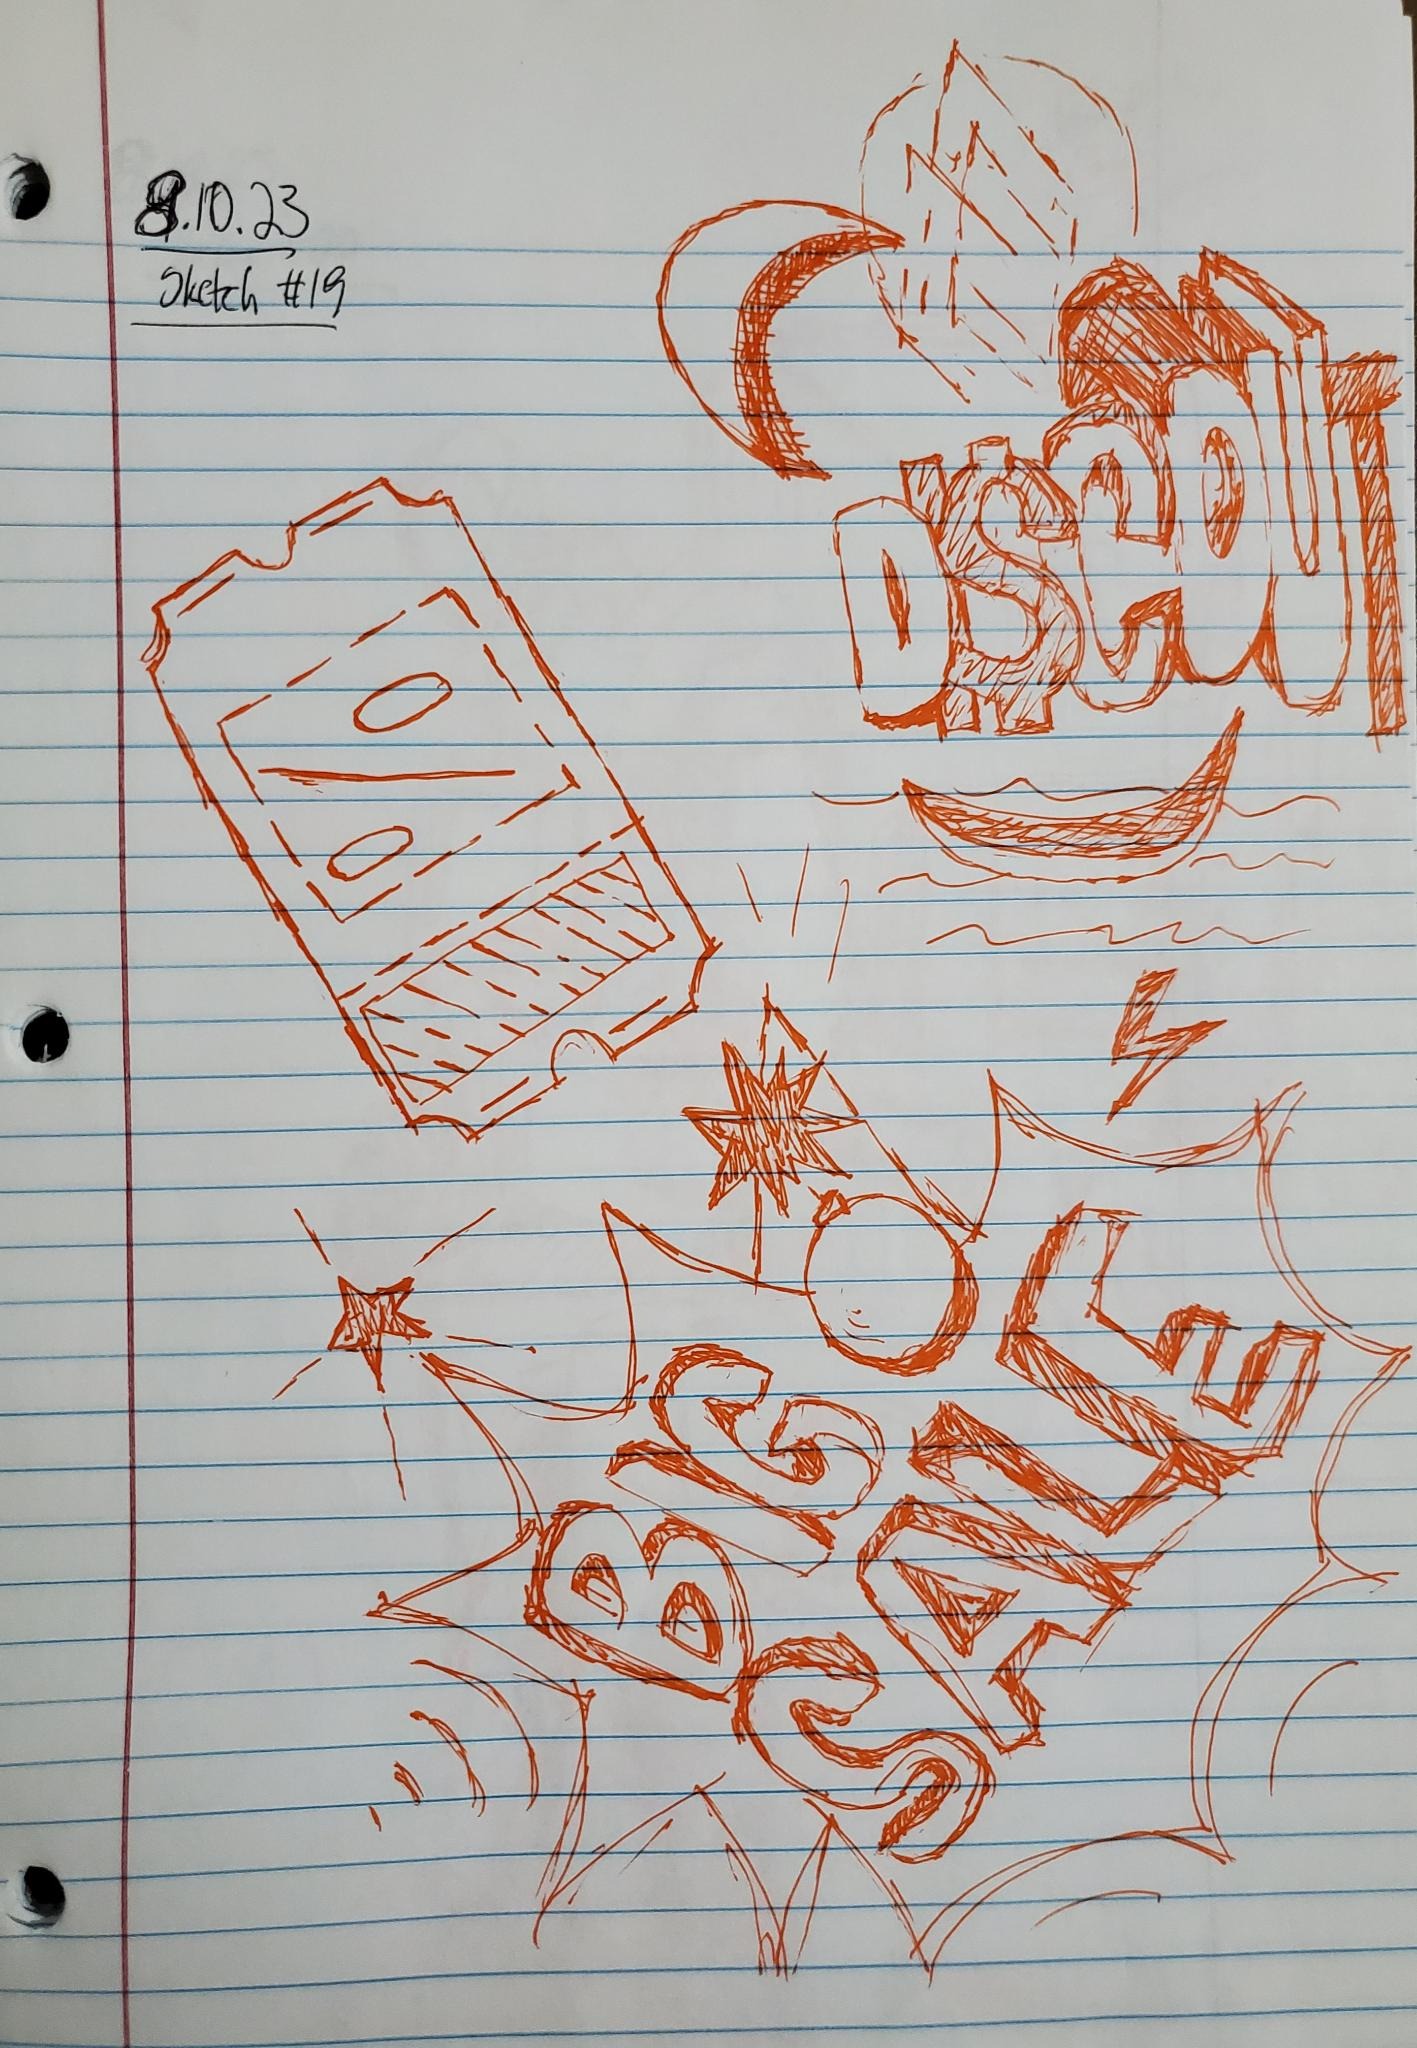 8.10.23
Sketch #19
DI$COUT
BIG
SALE